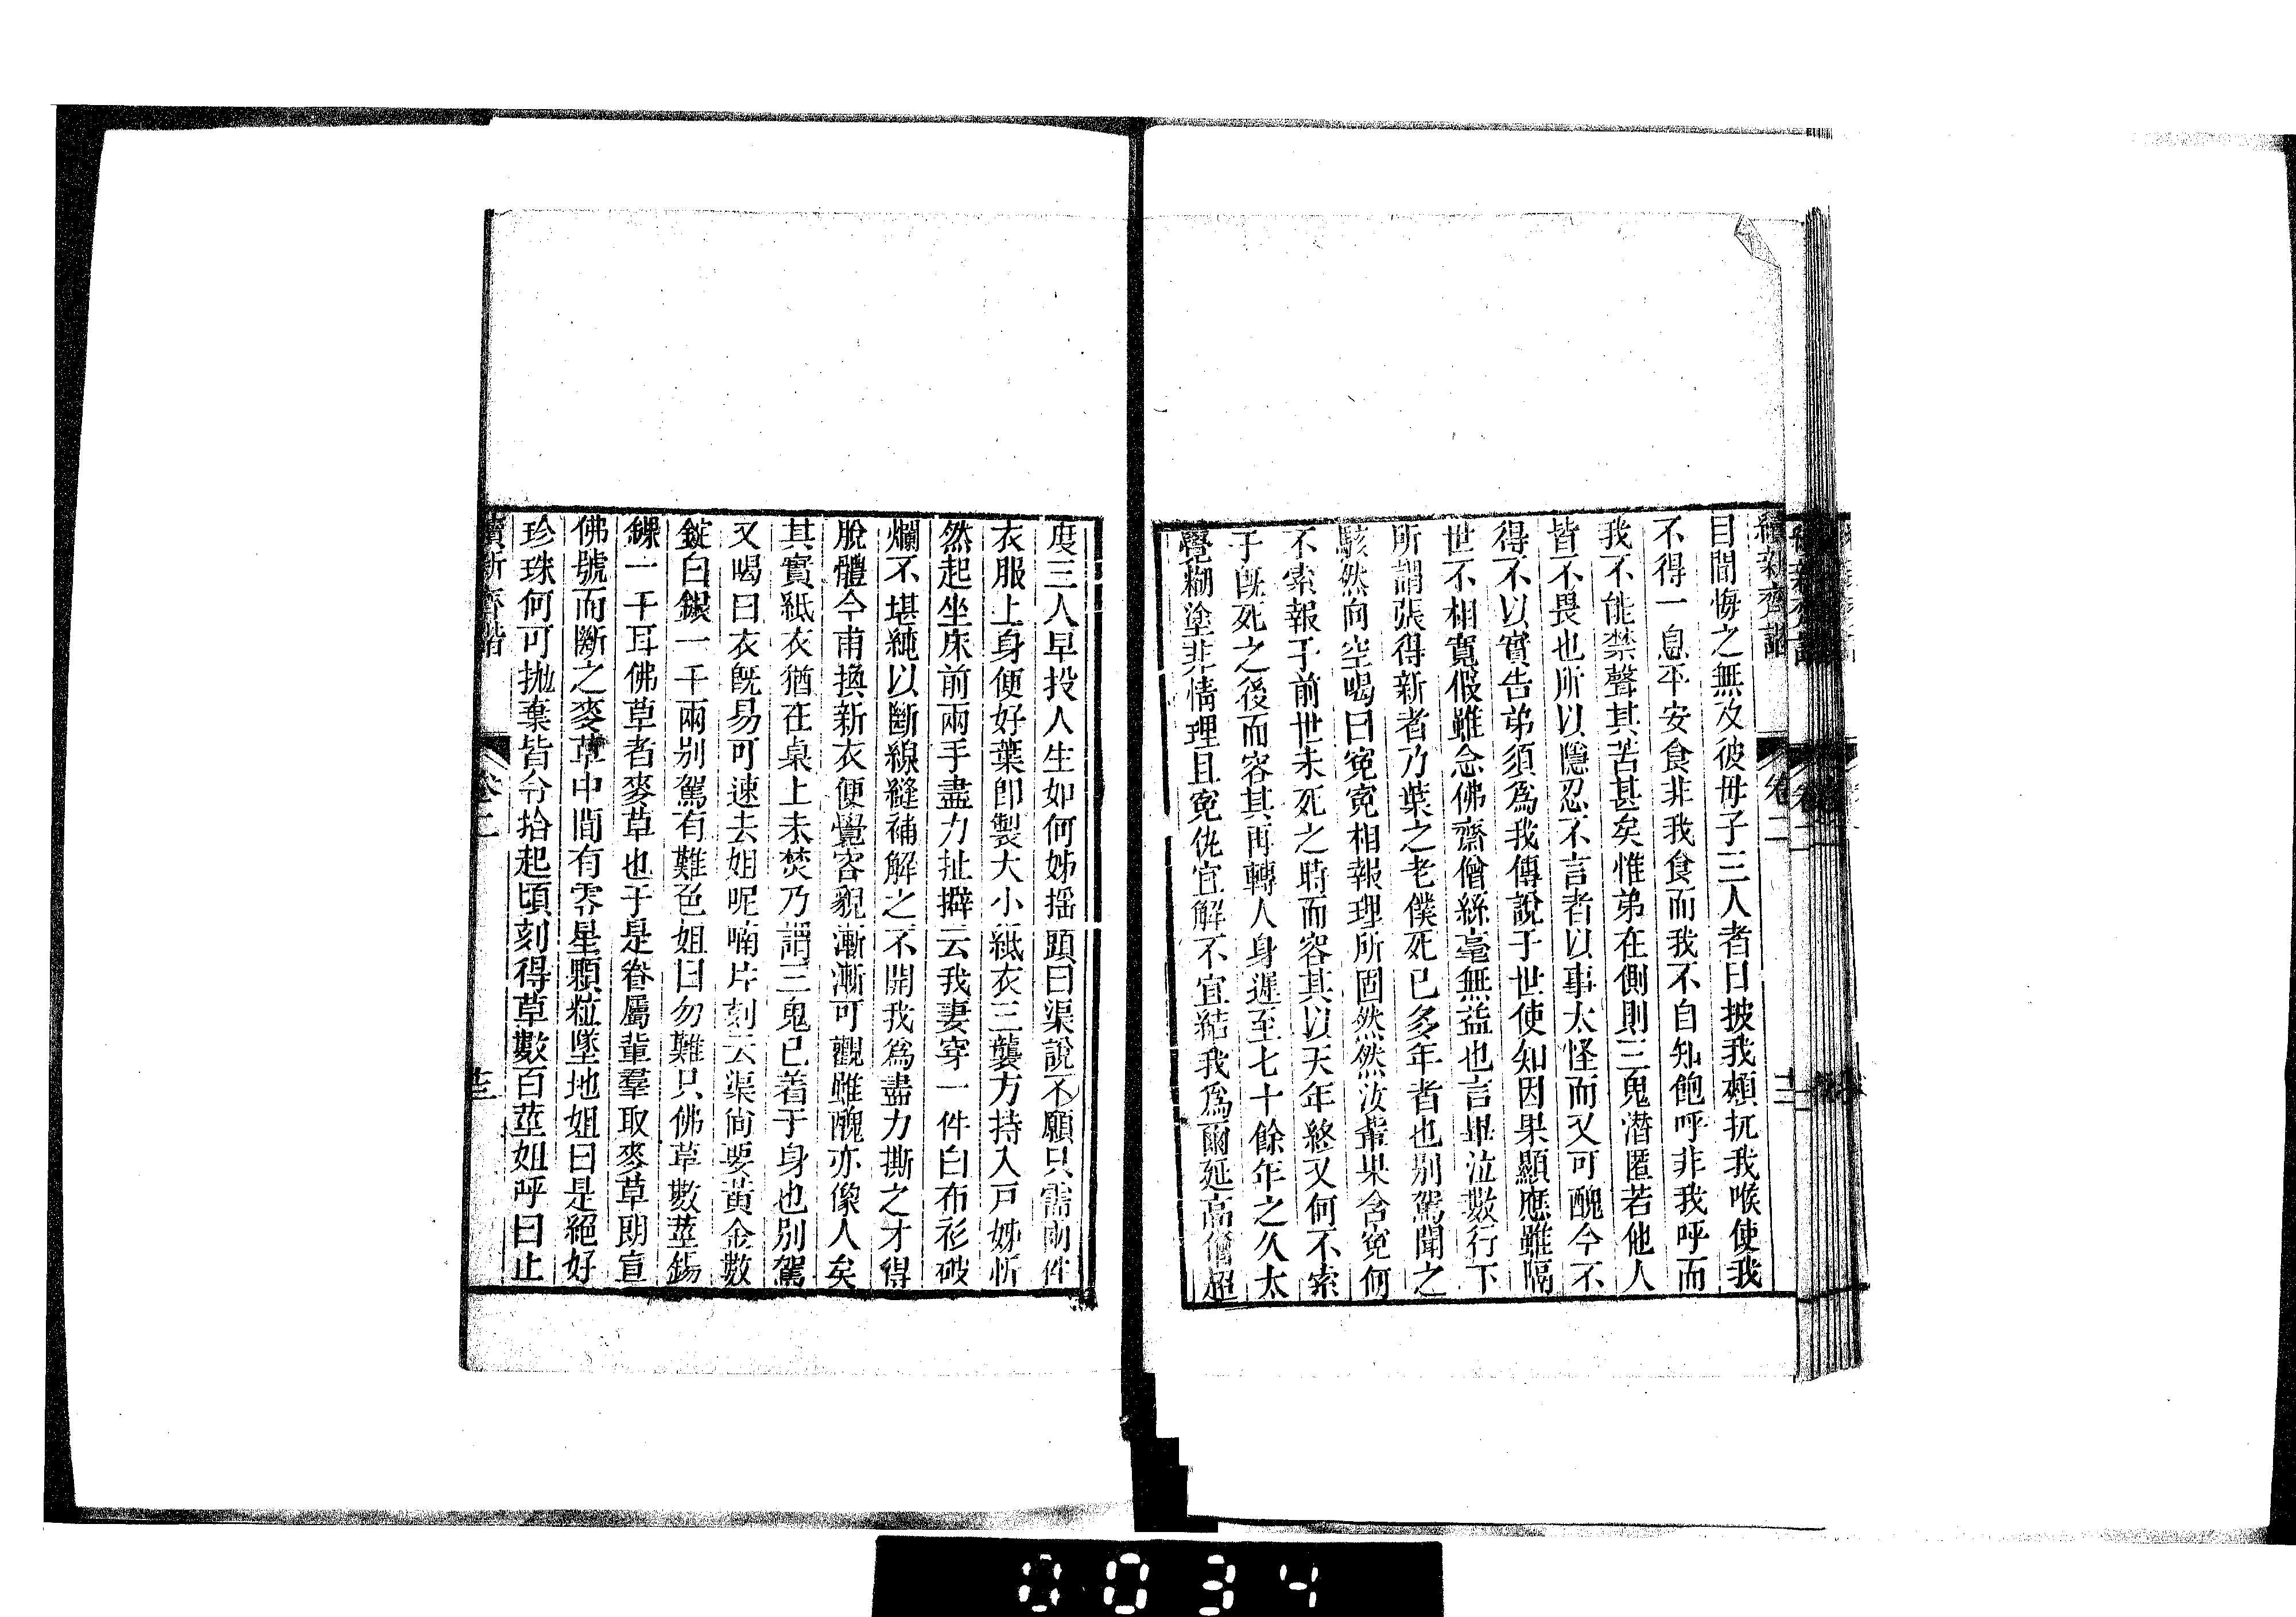 續新齊諧
卷二
目間悔之無及彼母子三人者日披我頰扼我喉使我
不得一息平安食非我食而我不自知飽呼非我呼而
我不能禁聲其苦甚矣惟弟在側則三鬼潛匿若他人
皆不畏也所以隱忍不言者以事太怪而又可醜今不
得不以實告弟須爲我傳說于世使知因果顯應雖隔
世不相寬假雖念佛齋僧絲毫無益也言畢泣數行下
所謂張得新者乃葉之老僕死已多年者也別駕聞之
駭然向空喝曰寃寃相報理所固然然汝輩果含寃何
不索報于前世未死之時而容其以天年終又何不索
于旣死之後而容其再轉人身遲至七十餘年之久太
覺糊塗非情理且寃仇宜解不宜結我爲爾延高僧超
度三人早投人生如何姊摇頭曰渠說不願只需兩件
衣服上身便好葉卽製大小紙衣三襲方持入戸姊忻
然起坐床前兩手盡力扯擗云我妻穿一件白布衫破
爛不堪純以斷線縫補解之不開我爲盡力撕之才得
脫體今甫換新衣便覺容貌漸漸可觀雖醜亦像人矣
其實紙衣猶在桌上未焚乃謂三鬼已着于身也別駕
又喝曰衣旣易可速去姐呢喃片刻云渠尙要黃金數
錠白銀一千兩別駕有難色姐曰勿難只佛草數莖錫
錁一千耳佛草者麥草也于是眷屬輩羣取麥草朗宣
佛號而斷之麥草中間有零星顆粒墜地姐曰是絕好
珍珠何可抛棄皆令拾起頃刻得草數百莖姐呼曰止
續新齊諧
卷二